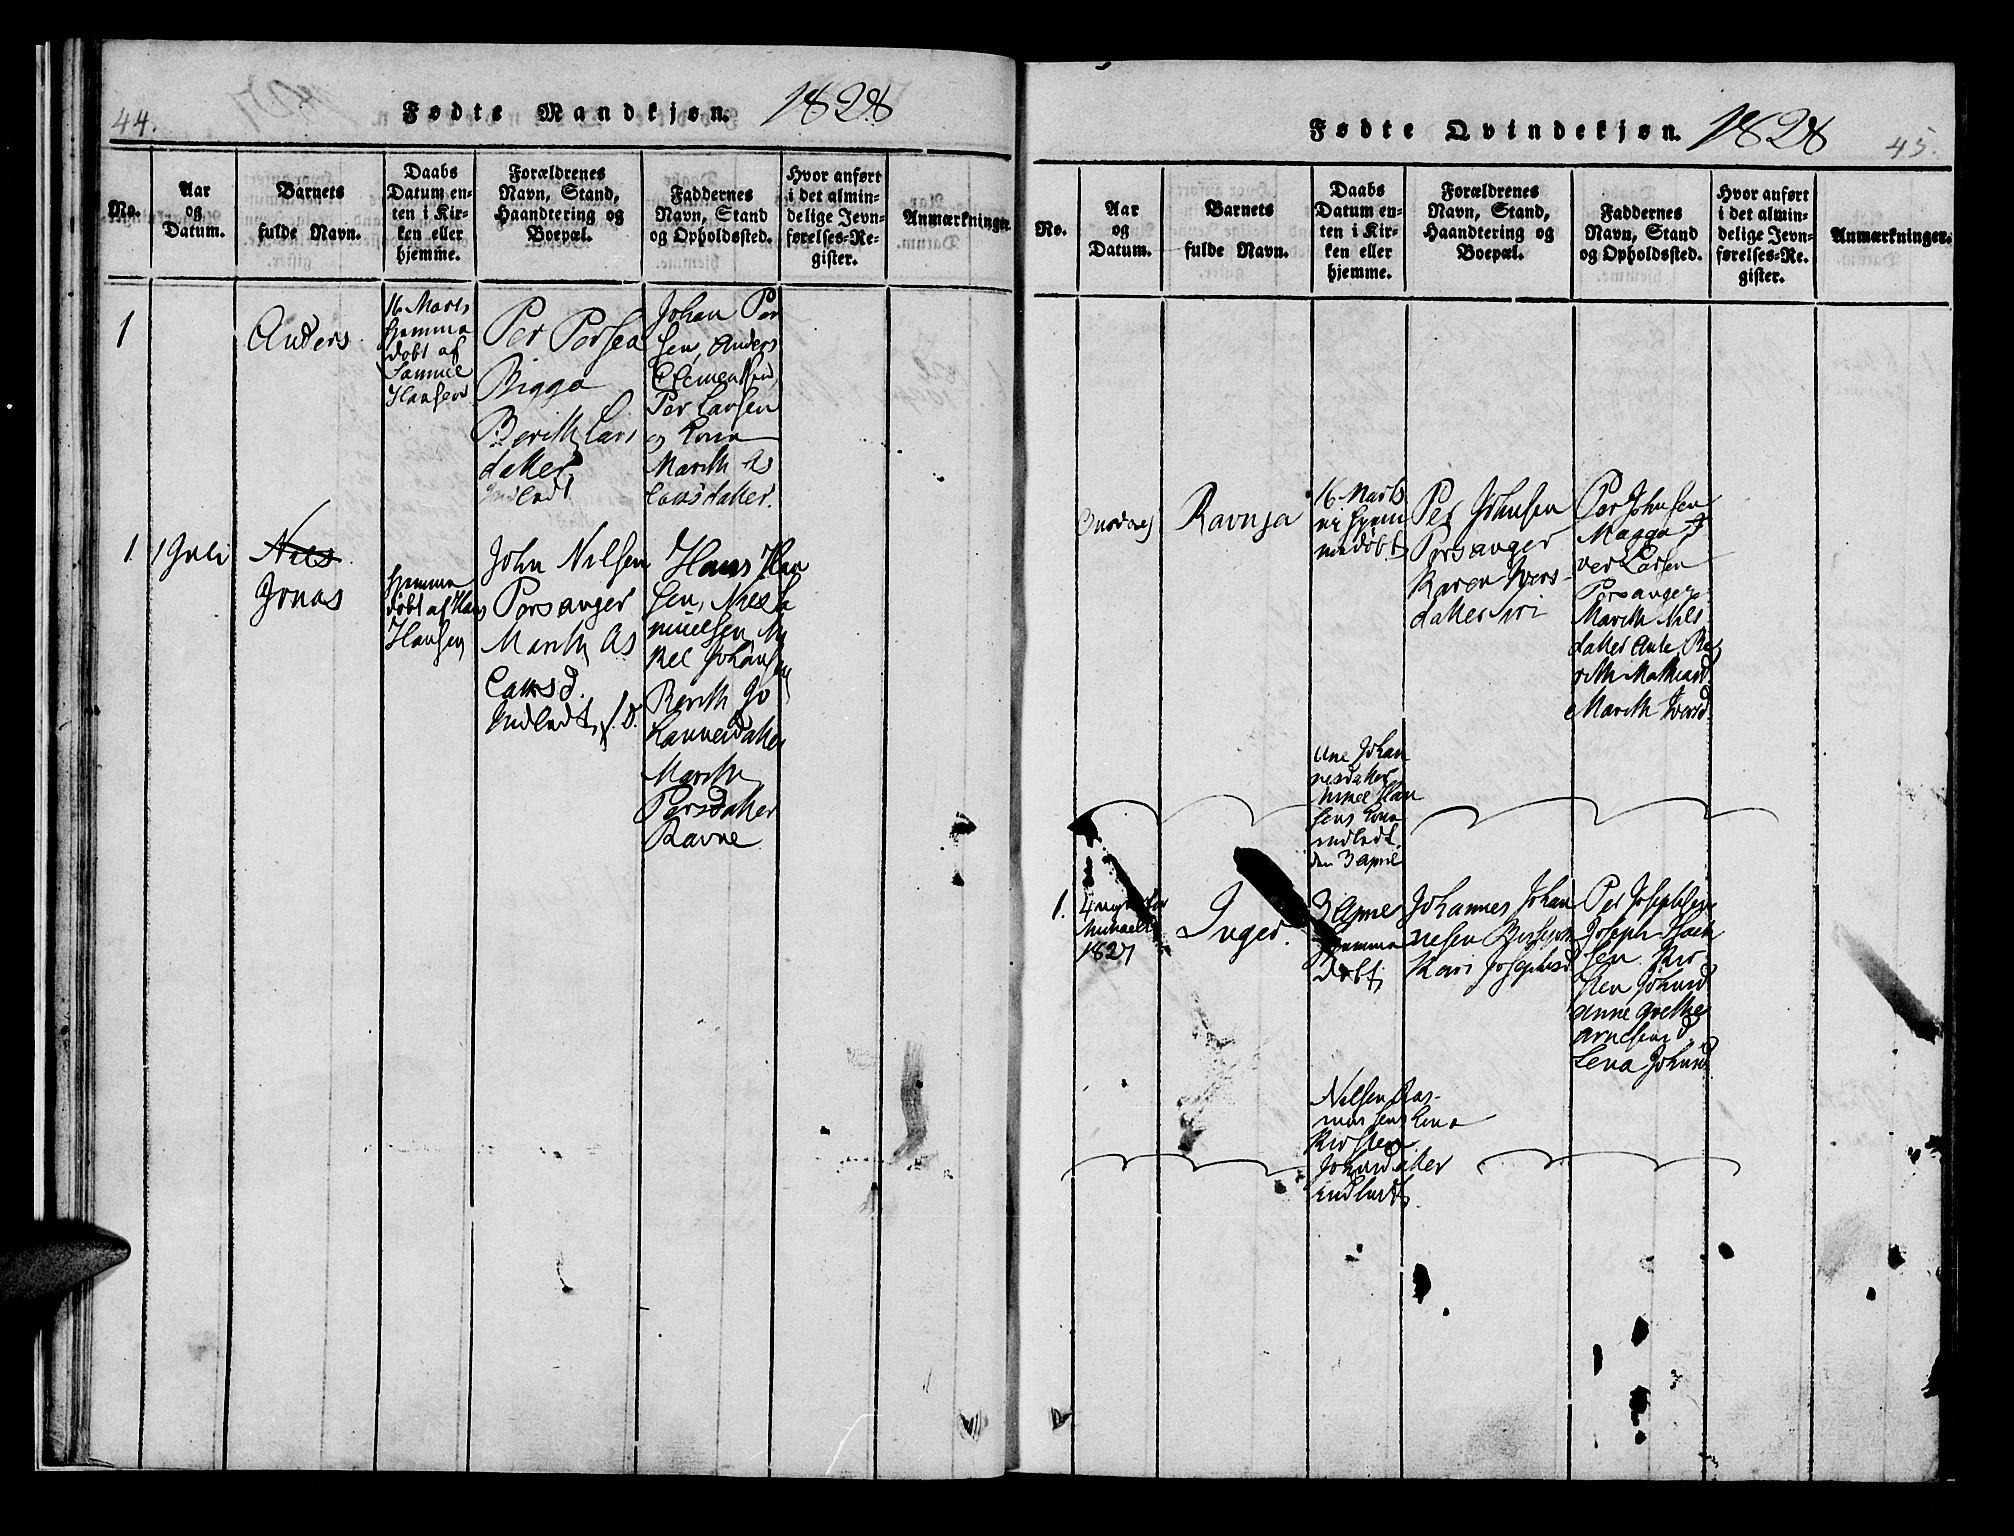 44.
Fødte Mandkjøn. 1828
No.
Aar
og
Datum.
Barnets
fulde Navn.
Daabs
Datum en-
ten i Kir-
ken eller
hjemme.
Forældrenes
Navn, Stand,
Haandtering og
Boepæl.
Faddernes
Navn, Stand
og Opholdssted.
Hvor anført
i det almin-
delige Jevn-
førelses-Re-
gister.
Anmærkninger.
1
Anders
16 Marts
hjemme
døbt af
Samuel
Hansen
Per Persen
Bigga
Berith Lars
datter
Indladt
Johan Per
sen, Anders
Clementsen,
Per Larsen
og Kona
Marith As
laksdatter.
1
1 Juli
Nils
Jonas
hjemme
døbt af Hans
Hansen
John Nilsen
Porsanger
Marith As
laksd.
Indladt
Hans Han
sen, Niels Sa
muelsen Mi
kel Johansen
Berith Jo
hannesdatter
Marithe
Persdatter
Ravne
Fødte Qvindekjøn. 1828
45.
No.
Aar
og
Datum.
Barnets
fulde Navn.
Daabs
Datum en-
ten i Kir-
ken eller
hjemme.
Forældrenes
Navn, Stand,
Haandtering og
Boepæl.
Faddernes
Navn, Stand
og Opholdssted.
Hvor anført
i det almin-
delige Jevn-
førelses-Re-
gister.
Anmærkninger.
Onsdag
Ravnja
16 Marts
hjem
medøbt
Per Johnsen
Porsanger
Karen Ivers-
datter Siri
Per Johnsen
Magga I
ver Larsen
Porsanger
Marith Nils
datter Be
rith Mathiasd
Marith Iversd.
Une Johan
nesdatter
Mikel Han
sens Kona
indledt.
den 3 April
1.
Michaeli
1827
Inger.
3 April
hjemme
døbt
Johannes Johan
nesen
Kari Josephsd
Per Josephsen
Joseph
sen Kir
sten Johnsd
Anne Grethe
Arnesens d
Lena Johnsd
Nilsen Ras-
mussens Kona
Kirsten
Johnsdatter
indledt.